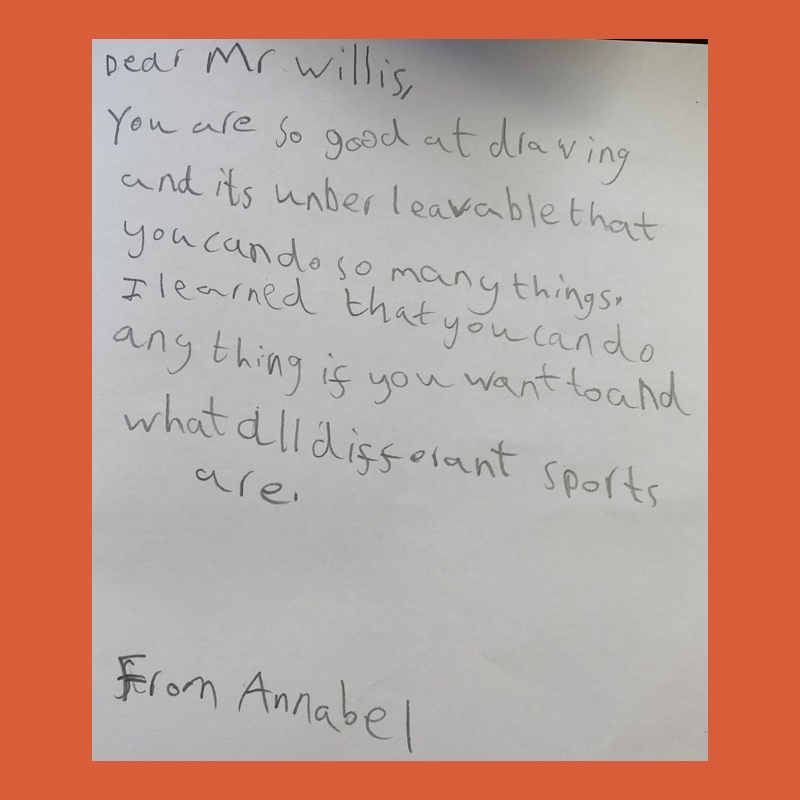 Dear Mr Willis,
You are so good at drawing
and its unber leavable that
you can do so many things.
I learned that you can do
any thing if you want to and
what all differant sports
are.
From Annabel